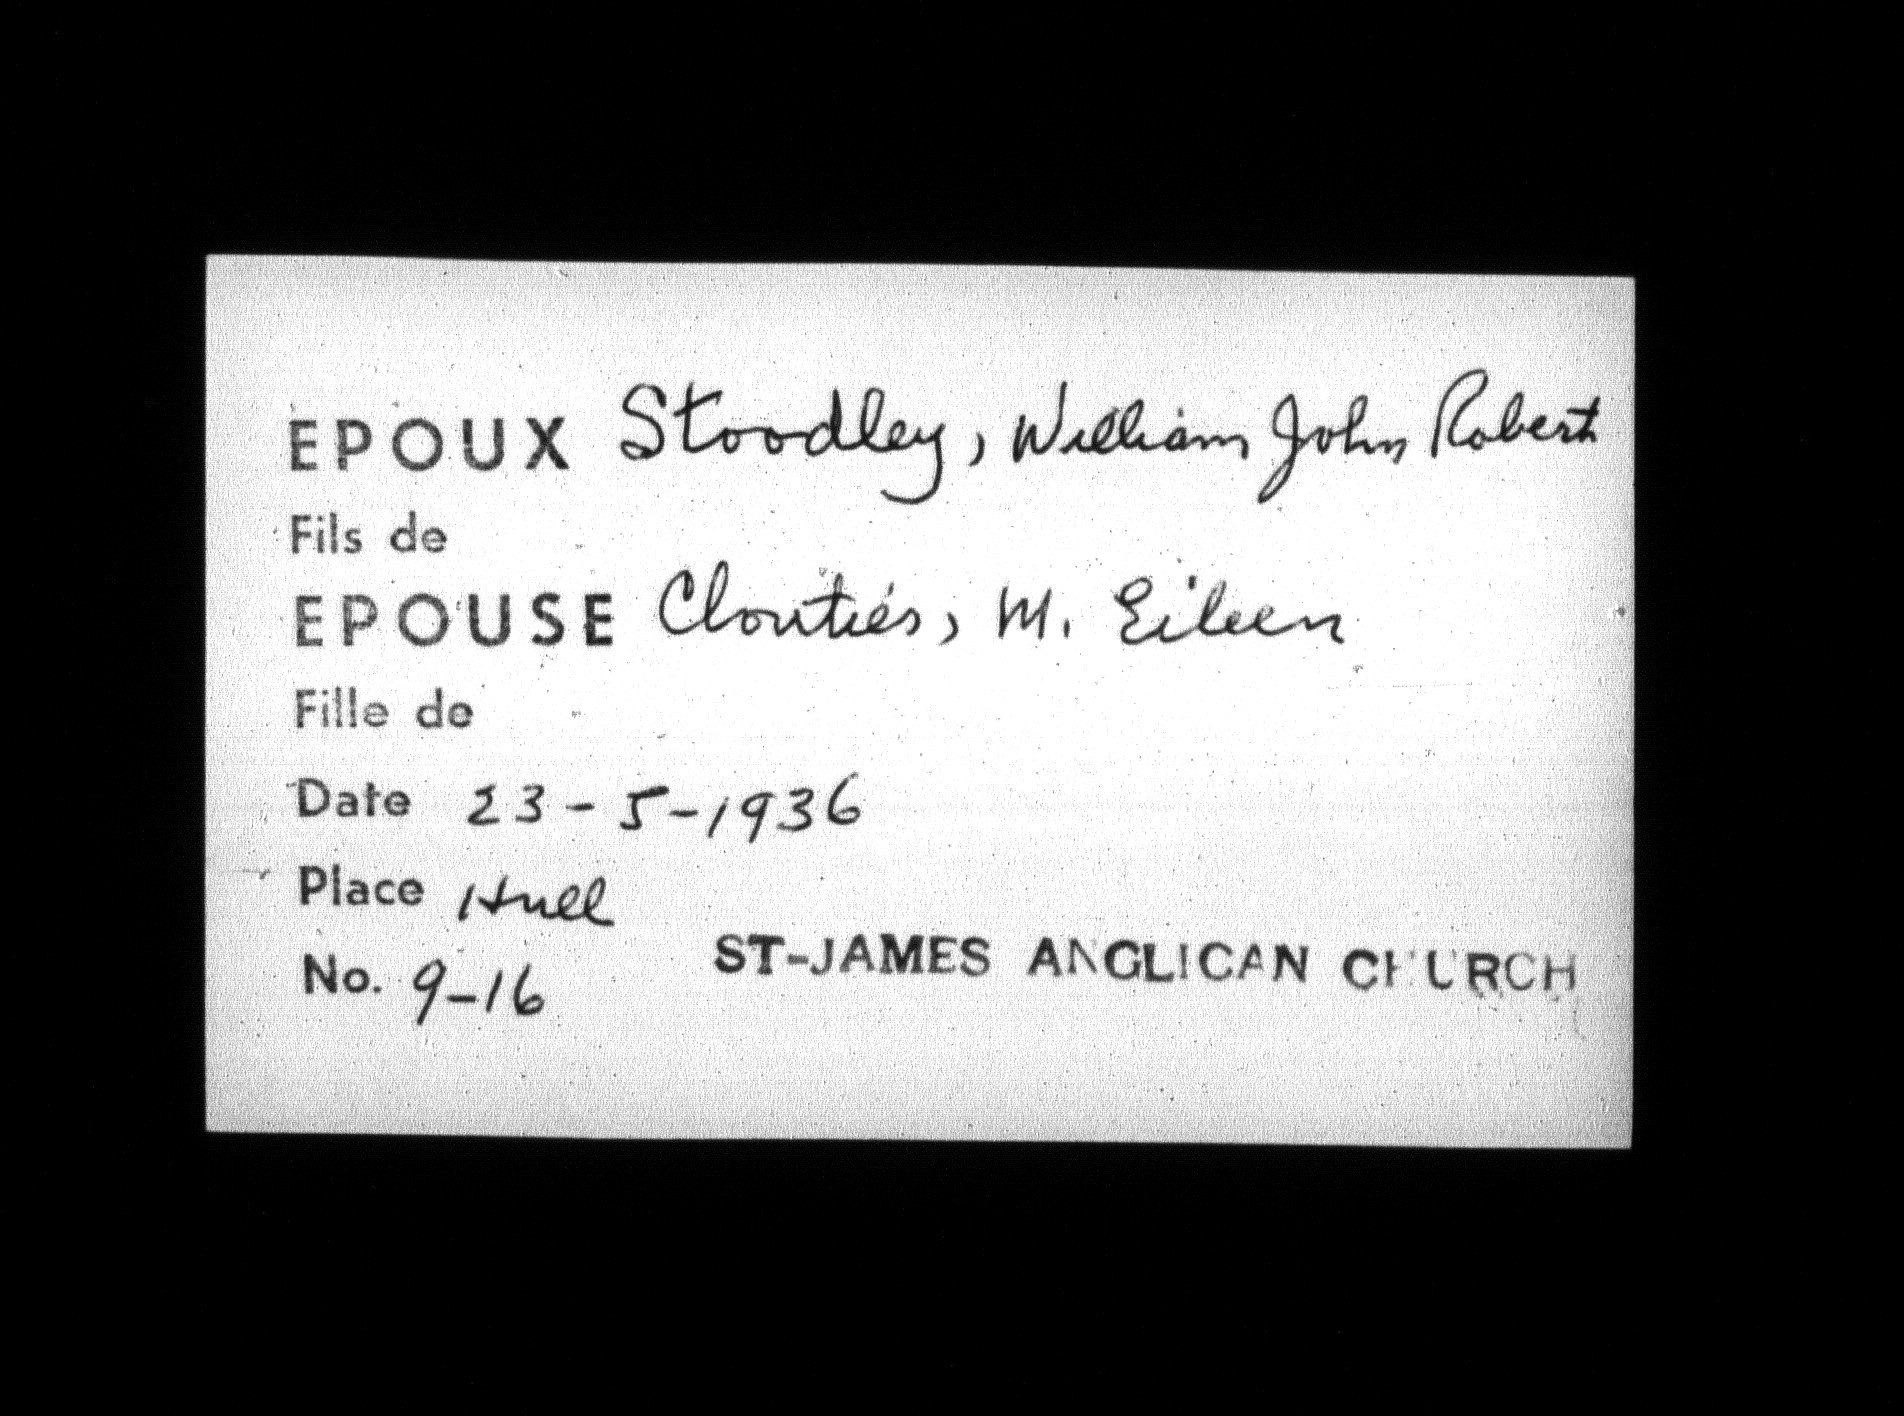 EPOUX Stoodley, William John Robert
Fils de
EPOUSE Cloutiés, M. Eileen
Fille de
Date 23-5-1936
Place Hull
No. 9-16 ST-JAMES ANGLICAN CHURCH